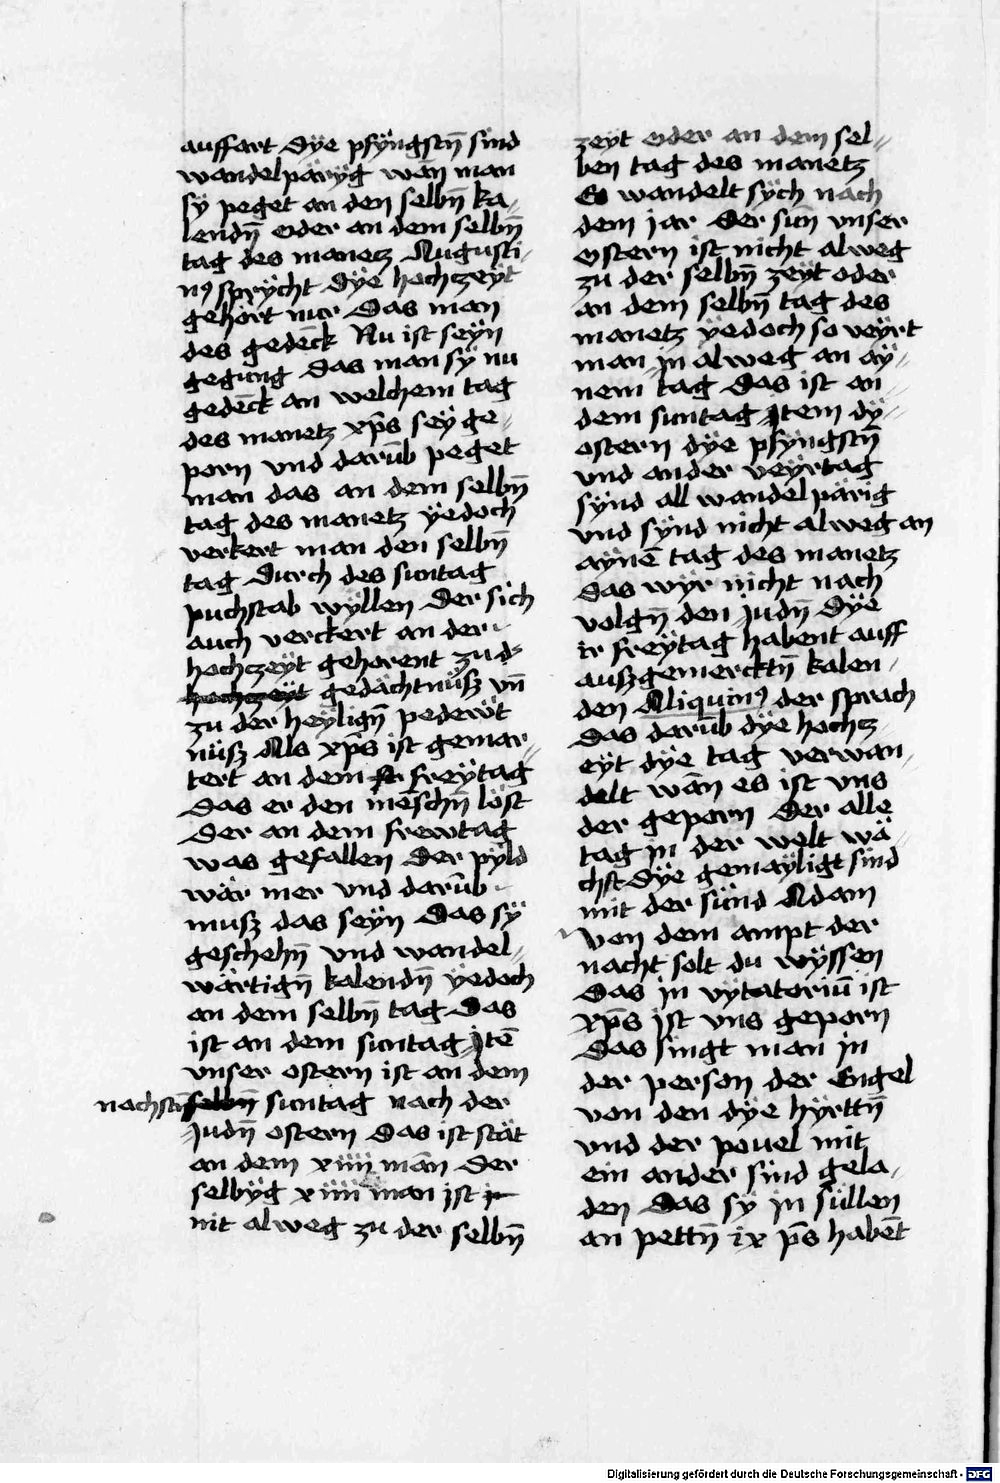 auffart dÿe pfÿngstn̄ sind
wandelpärÿg wān man
sÿ peget an den selbn̄ ka⸗
lendn̄ oder an dem selbn̄
tag des manetz Augusti⸗
nꝰ sprÿcht dÿe hochzeÿt
gehört nur das man
des gedēck Nu ist seÿn
gegung das man sÿ nu
gedēck an welchem tag
des manetz xp̄s seÿ ge⸗
porn vnd darūb peget
man das an dem selbn̄
tag des manetz ÿedoch
verkert man den selbn̄
tag durch des suntag
puchstab wÿllen der sich
auch verckert an der
hochzeÿt gehorent zu d⸗
hochzeÿt gedächtnüsz vn̄
zu der heÿlign̄ pederöt
nüsz Als xp̄s ist gemar⸗
tert an dem fr freÿtag
das er den mēschn̄ löst
der an dem freytag
was gefallen der pÿld
wär mer vnd darūb
musz das seÿn das sÿ
geschehn̄ vnd wandel⸗
wärtign̄ kalendn̄ ÿedoch
an dem selbn̄ tag das
ist an dem suntag Jtē
vnser ostern ist an dem
nachstn̄ selbn̄ suntag nach der
Judn̄ ostern das ist stät
an dem xiiii män der
selbÿg xiiii man ist in
nit alweg zu der selbn̄
zeÿt oder an dem sel⸗
ben tag des manetz
Es wandelt sÿch nach
dem jar der sūn vnser
ostern ist nicht alweg
zu der selbn̄ zeÿt oder
an dem selbn̄ tag des
manetz ÿedoch so veÿrt
man jn alweg an aÿ⸗
nem tag das ist an
dem suntag Jtem dÿ⸗
ostern dÿe pfÿngstn̄
vnd ander veÿrtag
sÿnd all wandelpärig
vnd sÿnd nicht alweg an
aÿnē tag des manetz
das wÿr nicht nach
volgn̄ den Judn̄ dÿe
ir freÿtag habent auff
auszgemercktn̄ kalen⸗
den Aliquinꝰ der sprach
das darūb dÿe hochz⸗
eÿt dÿe tag verwan⸗
delt wān es ist vns
der geporn der alle
tag jn der welt wä⸗
chst dÿe gemaÿligt sind
mit der sünd Adam
von dem ampt der
nacht solt du wÿssen
das jn vÿtatoriū ist
xp̄s jst vns geporn
das singt man jn
der person der Engel
von den dÿe hÿrttn̄
vnd der povel mit
ein ander sind gela⸗
den das sÿ jn süllen
an pettn̄ ix p̄s habēt
Digitalisierung gefördert durch die Deutsche Forschungsgemeinschaft - DFG